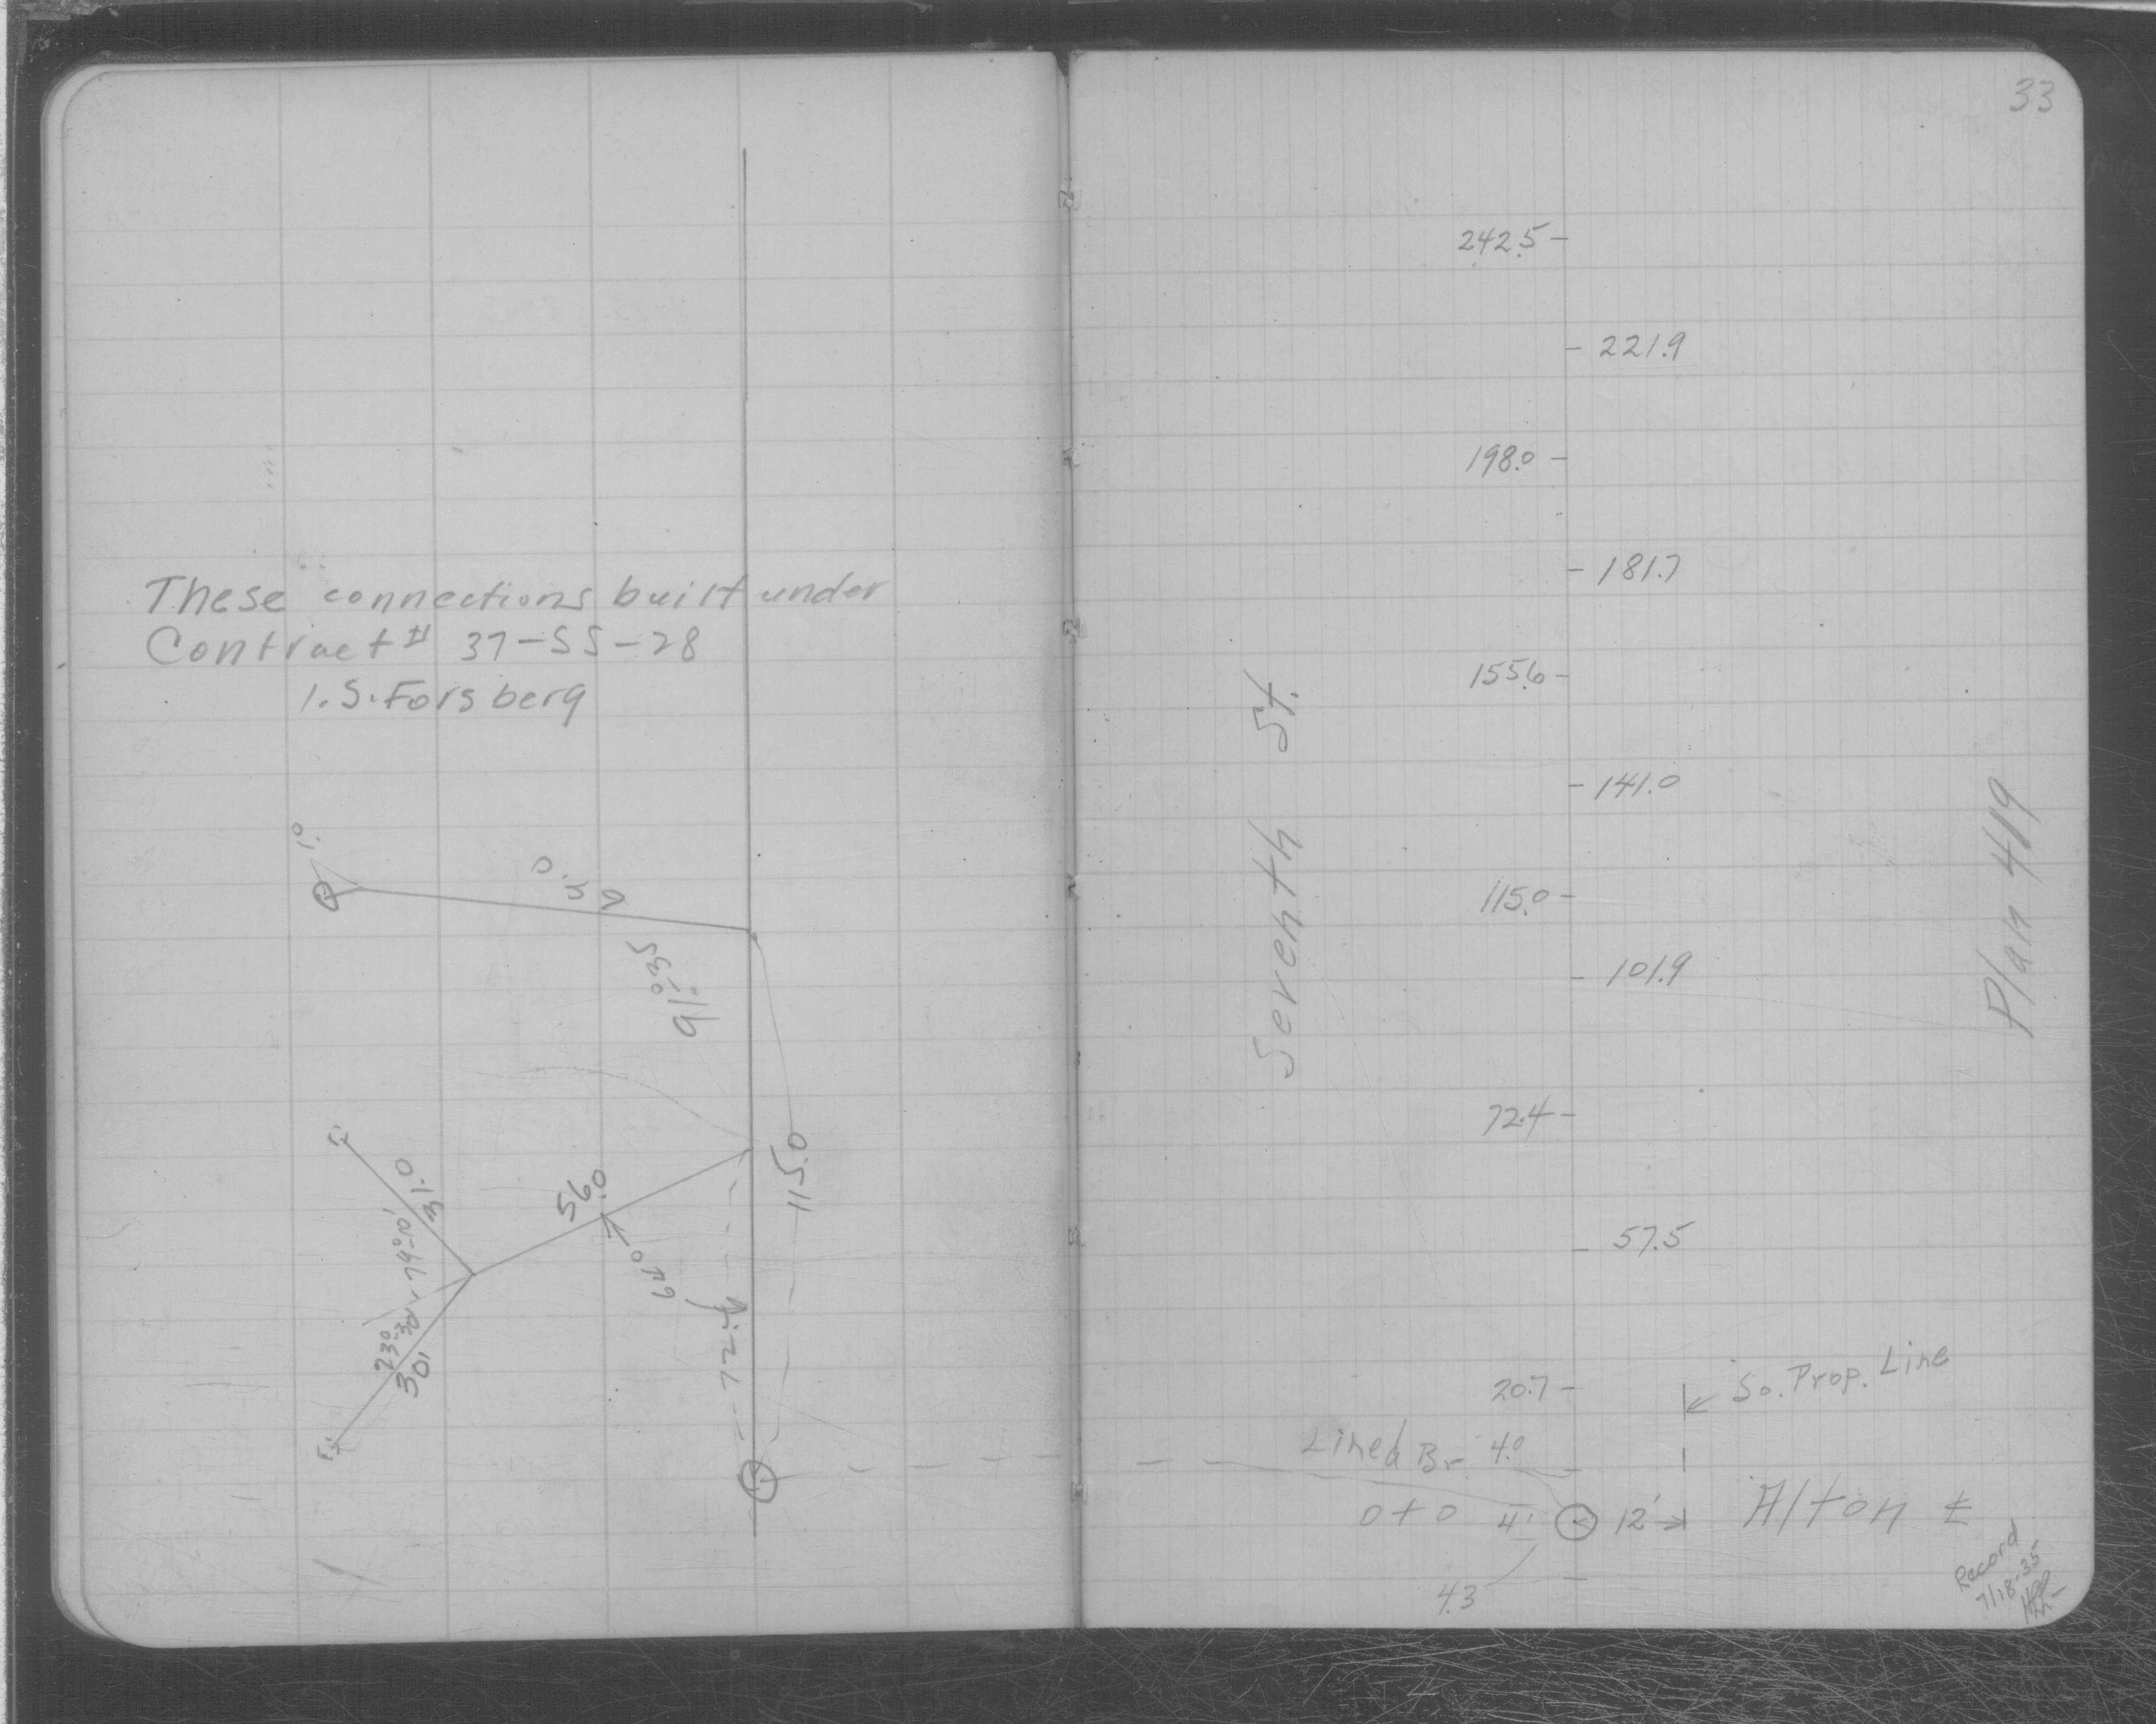 These connections built under
Contract # 37-SS-28
I.S. Forsberg
1.0
4.0
91°-35
31.0
79°-10'
56.0
64°
23°-30'
30'
72.4
115.0
33
242.5
221.9
198.0
181.7
155.6
141.0
115.0
101.9
72.4
57.5
20.7
Seventh St.
Plan 419
So. Prop. Line
Lined Br 4.0
0+0 4' 12' Alton
4.3
Record
7/18-35